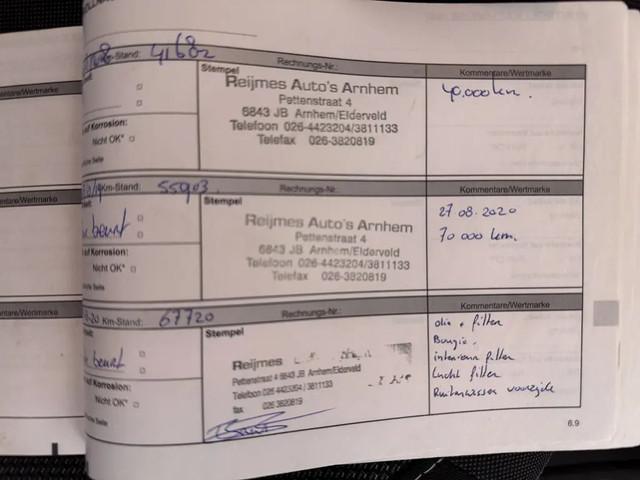 Km-Stand: 41682
Rechnungs-Nr.:
Kommentare/Wertmarke
Stempel
Reijmes Auto's Arnhem
Pettenstraat 4
6843 JB Arnhem/Elderveld
Telefoon 026-4423204/3811133
Telefax 026-3820819
40,000 km.
Korrosion:
Nicht OK*
Km-Stand: 55903
Rechnungs-Nr.:
Kommentare/Wertmarke
Stempel
Reijmes Auto's Arnhem
Pettenstraat 4
6843 JB Arnhem/Elderveld
Telefoon 026-4423204/3811133
Telefax 026-3820819
27 08.2020
70 000 km.
beurt
auf Korrosion:
Nicht OK*
Km-Stand: 67720
Rechnungs-Nr.:
Kommentare/Wertmarke
Stempel
Reijmes
Pettenstraat 4 6843 JB Arnhem/Elderveld
Telefoon 026-4423204 / 3811133
fax 026 3820819
olie + filter
Bougie.
interieur filter
Lucht filter
Ruitenwisser voorzijde
beurt
auf Korrosion:
Nicht OK*
6.9